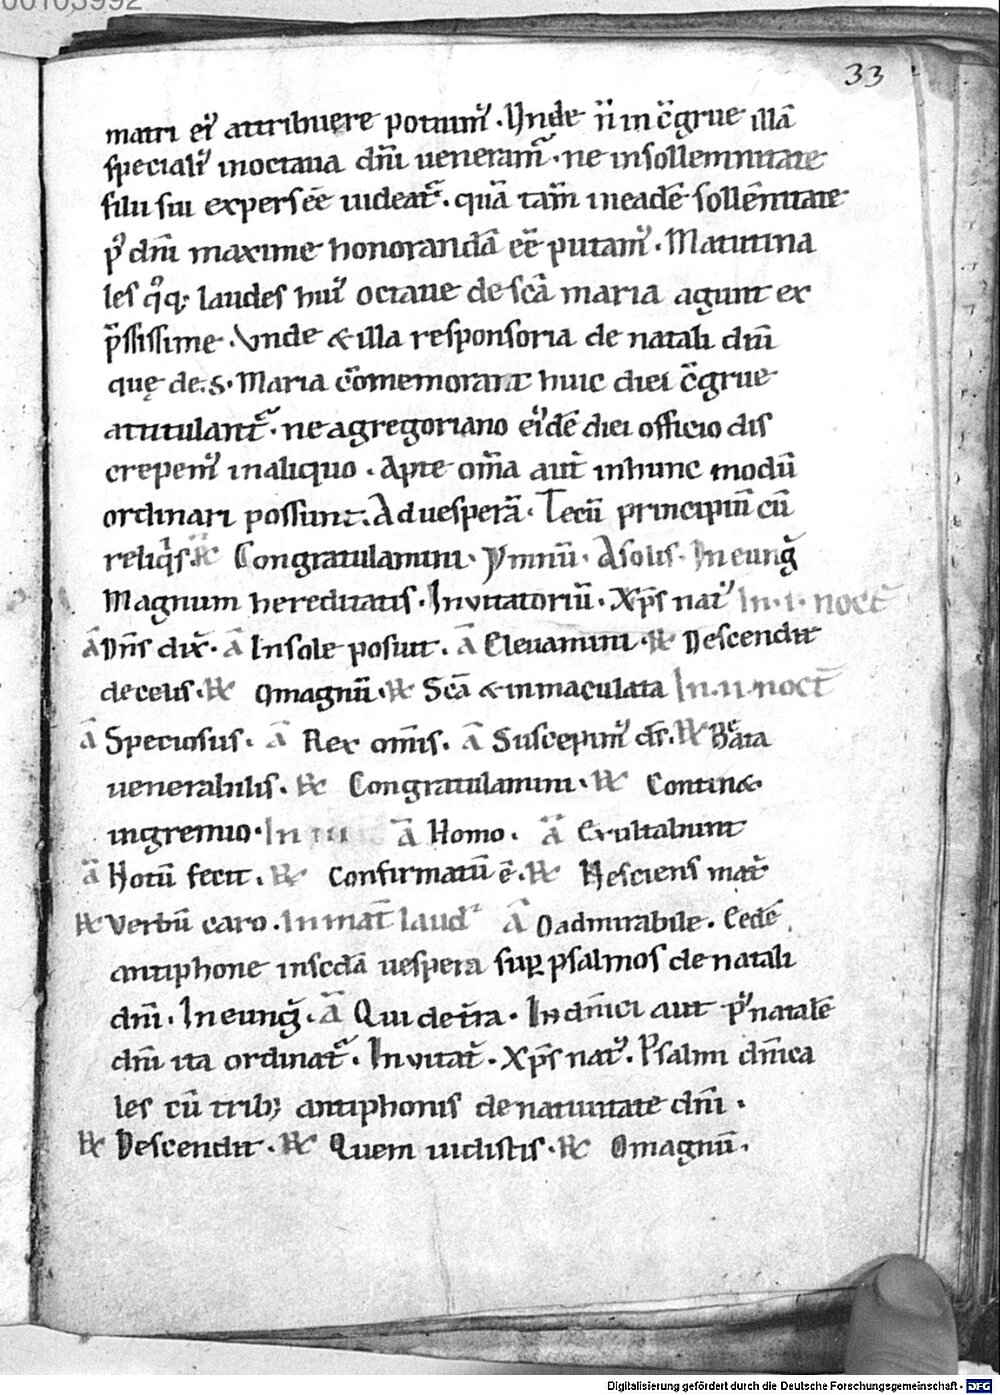 00103992
33
matri ei᷒ attribuere potuim᷒. Vnde n̄ incc̄grue illā
speciali᷒ inoctaua dn̄i ueneram᷒. ne insollemnitate
filii sui expers eē uideat᷒. quā tam̄ ineadē sollēnitate
p᷒ dn̄i maxime honorandā eē putam᷒. Matutina
les qͦq; laudes hui᷒ octaue de sc̄a maria agunt ex
p̄ssissime. Vnde & illa responsoria de natali dn̄i
quę de.S. Maria cōmemorant huic diei c̄grue
atitulant᷒. ne agregoriano ei᷒dē diei officio dis
crepem᷒ inaliquo. Apte om̄ia aut̄ inhunc modū
ordinari possunt. Ad uesperā. Tecū principiū cū
reliq̇s. ℟ Congratulamini. Ymnū. Asolis. In eunḡ
Magnum hereditatis. Inuitatoriū. Xp̄s nat᷒ In .i. noct̄
ā Dn̄s dix̄. ā Insole posuit. ā Eleuamini. ℟ Descendit
decelis. ℟ Omagnū. ℟ Scā & inmaculata In .ii. noct̄
ā Speciosus. ā Rex om̄is. ā Suscepim᷒ ds̄. ℟ Beata
uenerabilis. ℟ Congratulamini. ℟ Contin&
ingremio. In iii ā Homo. ā Exultabunt
ā Notū fecit. ℟ Confirmatū ē. ℟ Nesciens mat̄
℟ Verbū caro. In mat̄ laud᷒ ā Oadmirabile. Eedē
antiphone inscdā uespera sup psalmos de natali
dn̄i. In eunḡ. ā Qui de t̄ra. In dn̄ici aut p᷒ natalē
dn̄i ita ordinat᷒. Inuitat̄. Xp̄s nat᷒. Psalmi dn̄ica
les cū trib; antiphonis de natiuitate dn̄i.
℟ Descendit. ℟ Quem uidistis. ℟ Omagnū.
Digitalisierung gefördert durch die Deutsche Forschungsgemeinschaft - DFG